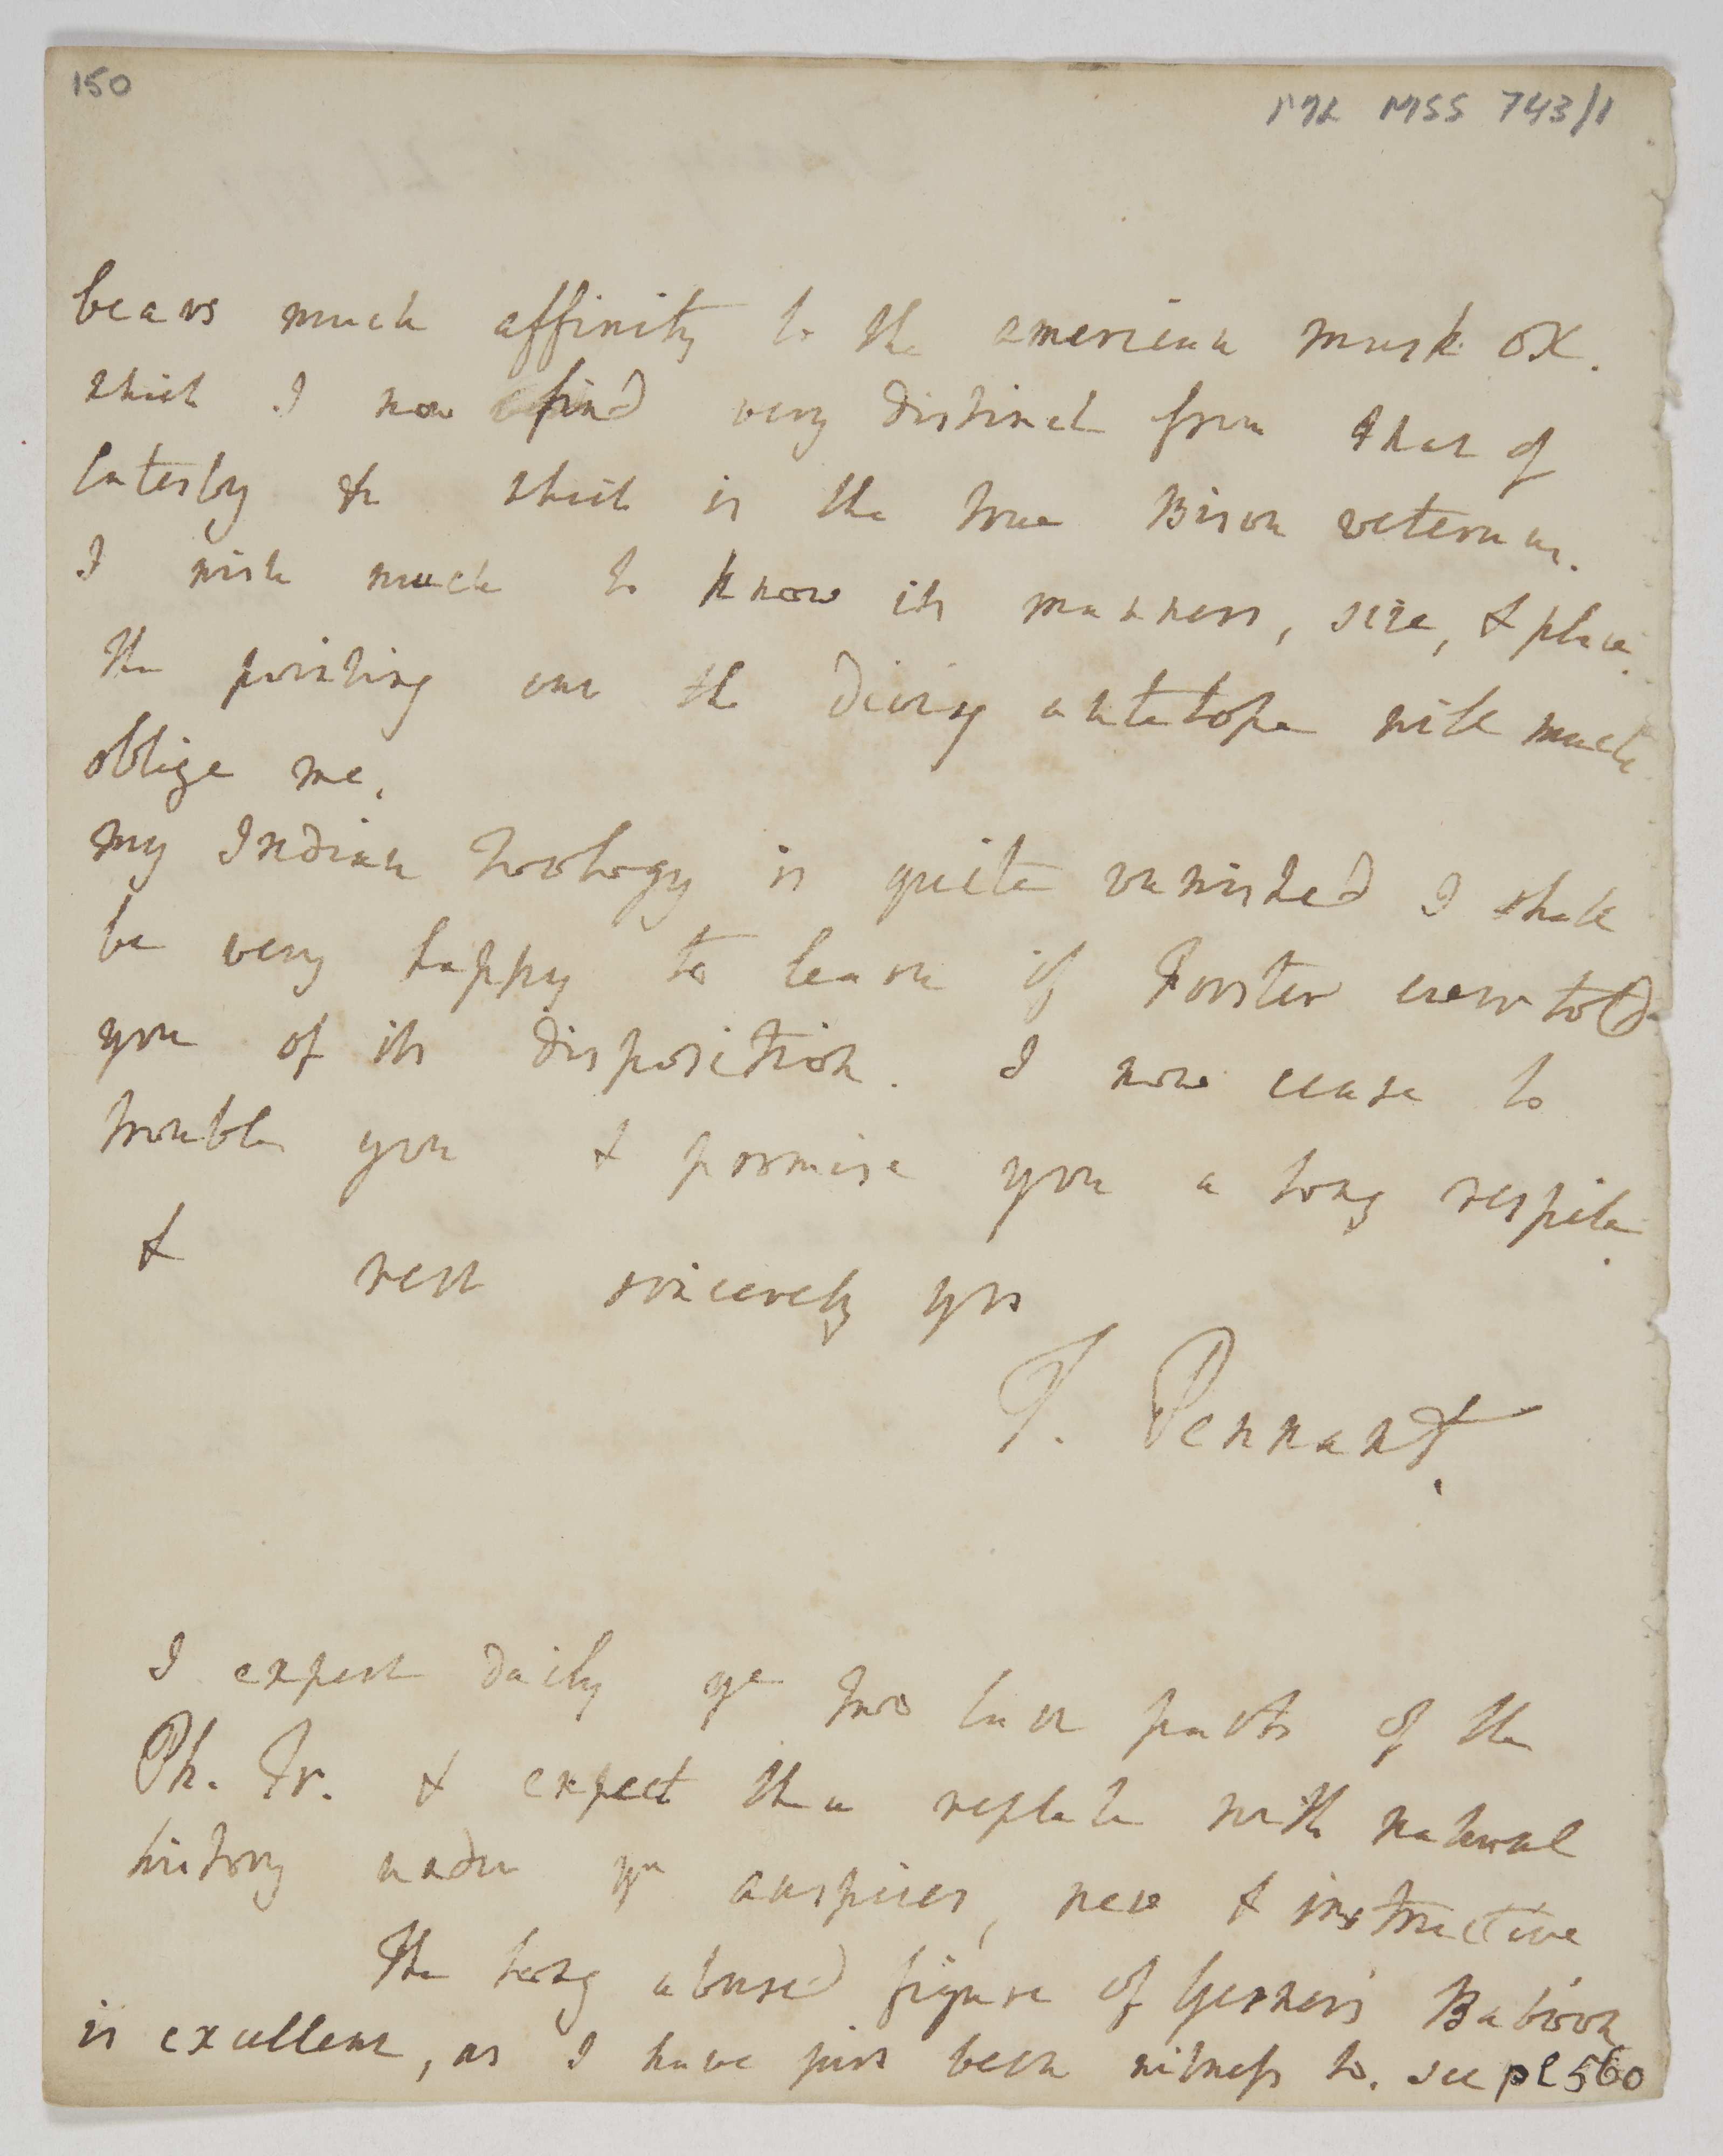 150
ML MSS 743/1
bears much affinity to the american musk ox.
which I now find very distinct from that of
Catesby &c which is the true Bison veterum.
I wish much to know its manners, size, & place.
the pointing out the diving antelope will much
oblige me.
my Indian Zoology is quite vanished I shall
be very happy to learn if Forster ever told
you of its disposition. I now cease to
trouble you & promise you a long respite.
& rest sincerely yrs
T. Pennant.
I expect daily ye two last parts of the
Ph. Tr. & expect them replete with natural
history under yr auspices, new & instructive
The long abused figure of Gesner's Baboon
is excellent, as I have just been witness to. see pl 560